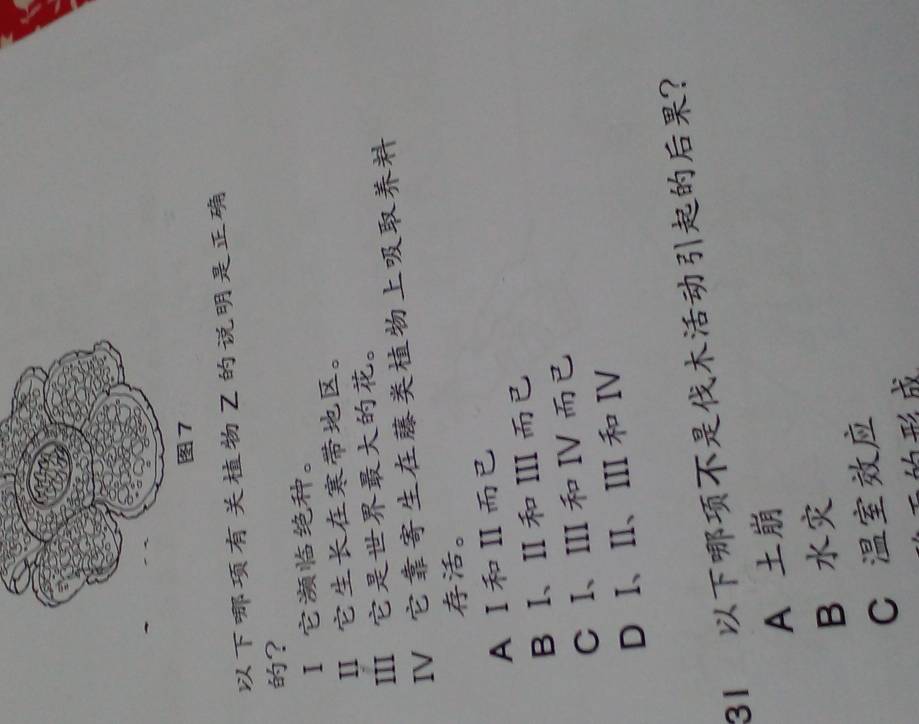 图7
以下哪项有关植物Z的说明是正确
的?
I 它濒临绝种。
II 它生长在寒带地区。
III 它是世界最大的花。
IV 它靠寄生在藤类植物上吸取养料
存活。
A I和II而已
B I、II和III而已
C I、III和IV而已
D I、II、III和IV
31 以下哪项不是伐木活动引起的后果?
A 土崩
B 水灾
C 温室效应
的形成